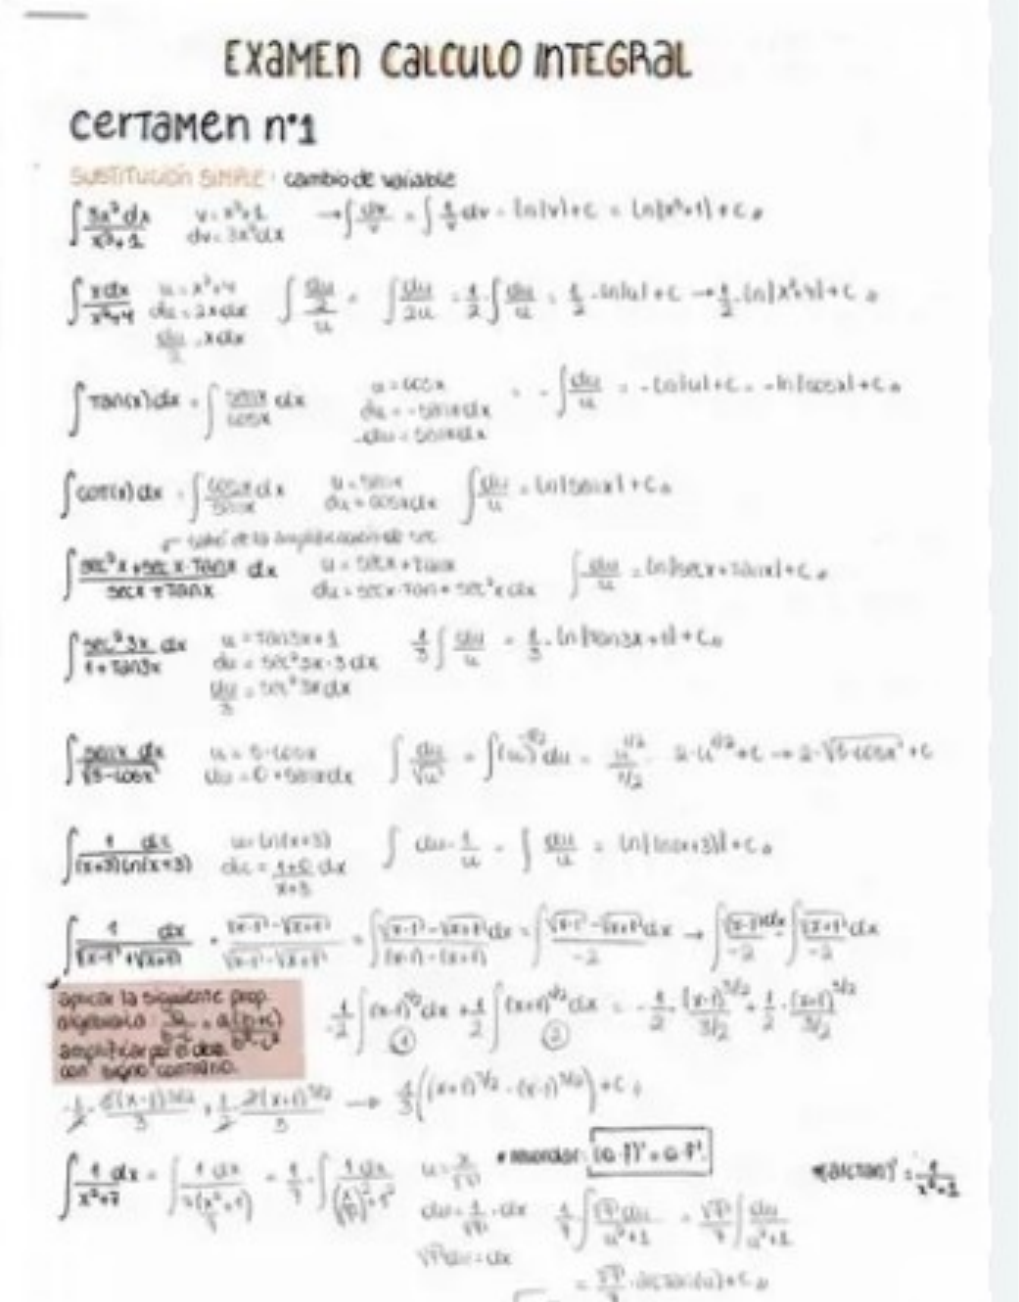 EXAMEN CALCULO INTEGRAL
certamen n°1
SUSTITUCIÓN SIMPLE: cambio de variable
∫ 3x² dx / x³+1   v = x³+1   dv = 3x² dx   → ∫ dv/v = ∫ 1/v dv = ln|v| + c = ln|x³+1| + c
∫ x dx / x²+4   u = x²+4   du = 2x dx   du/2 = x dx   ∫ du/2 / u = ∫ du/2u = 1/2 · ∫ du/u = 1/2 · ln|u| + c → 1/2 · ln|x²+4| + c
∫ Tan(x) dx = ∫ senx/cosx dx   u = cosx   du = -senx dx   -du = senx dx   = -∫ du/u = -ln|u| + c = -ln|cosx| + c
∫ cot(x) dx = ∫ cosx/senx dx   u = senx   du = cosx dx   ∫ du/u = ln|senx| + c
de la amplificación de sec
∫ sec²x + secx·Tanx / secx + Tanx dx   u = secx + Tanx   du = secx·Tan + sec²x dx   ∫ du/u = ln|secx + Tanx| + c
∫ sec²3x dx / 1+Tan3x   u = Tan3x+1   du = sec²3x·3 dx   du/3 = sec²3x dx   1/3 ∫ du/u = 1/3 · ln|Tan3x+1| + c
∫ senx dx / √5-cosx   u = 5-cosx   du = 0+senx dx   ∫ du/√u = ∫ (u)^-1/2 du = u^1/2 / 1/2   2·u^1/2 + c → 2·√5-cosx + c
∫ 1 dx / (x+3)ln(x+3)   u = ln(x+3)   du = 1+0/x+3 dx   ∫ du·1/u = ∫ du/u = ln|ln(x+3)| + c
∫ 1 dx / √x-1 + √x+1 · √x-1 - √x+1 / √x-1 - √x+1 = ∫ √x-1 - √x+1 dx / (x-1)-(x+1) = ∫ √x-1 - √x+1 dx / -2 → ∫ √x-1 dx / -2 - ∫ √x+1 dx / -2
aplicar la siguiente prop.
algebraica
amplificar por el dos.
con signo contrario.
-1/2 ∫ (x-1)^1/2 dx + 1/2 ∫ (x+1)^1/2 dx = -1/2 · (x-1)^3/2 / 3/2 + 1/2 · (x+1)^3/2 / 3/2
① ②
-1/2 · 2(x-1)^3/2 / 3 + 1/2 · 2(x+1)^3/2 / 3 → 1/3 ((x+1)^3/2 - (x-1)^3/2) + c
∫ 1 dx / x²+7 = ∫ 1 dx / 7(x²/7+1) = 1/7 · ∫ 1 dx / (x/√7)²+1²   u = x/√7   * recordar: (a·f)' = a·f'.   *(arctan)' = 1/x²+1
du = 1/√7 · dx   1/7 ∫ √7 du / u²+1 = √7/7 ∫ du / u²+1
√7 du = dx
= √7/7 · arctan(u) + c